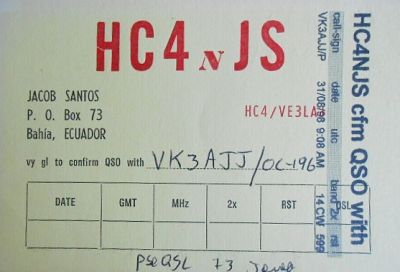 HC4NJS
JACOB SANTOS
P. O. Box 73
Bahía, ECUADOR
HC4/VE3LA
vy gl to confirm QSO with VK3AJJ/OC-196
DATE GMT MHz 2x RST QSL
Pse QSL 73
HC4NJS cfm QSO with
call-sign date utc band 2x rst
VK3AJJ/P 31/08/98 9:08 AM 14 CW 599